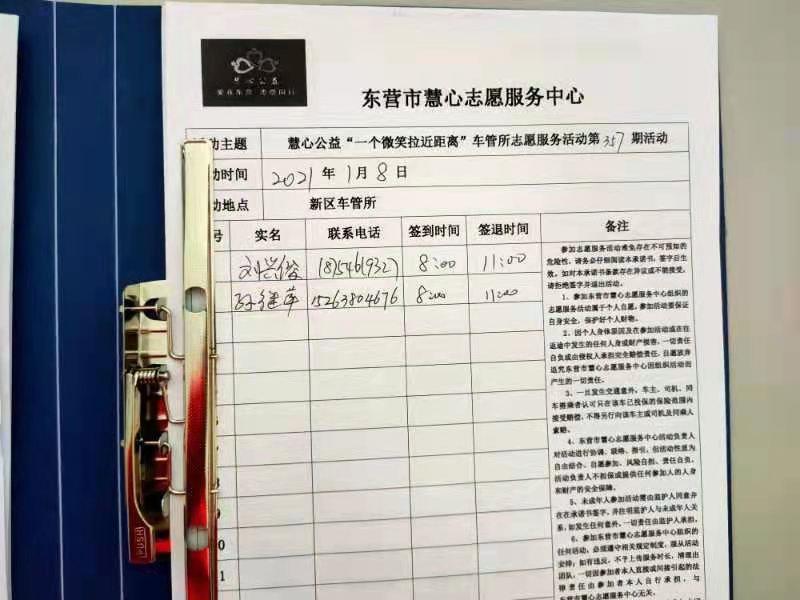 心公益
东营市慧心志愿服务中心
动主题 慧心公益“一个微笑拉近距离”车管所志愿服务活动第357期活动
动时间 2021年1月8日
动地点 新区车管所
号 实名 联系电话 签到时间 签退时间 备注
18754619327 8:00 11:00
孙继萍 15263804676 8:00 11:00
参加志愿服务活动难免存在不可预知的
危险性，请务必仔细阅读本承诺书，签字后生
效。如对本承诺书条款存在异议或不能接受，
请拒绝签字并退出活动。
1、参加东营市慧心志愿服务中心组织的
志愿服务活动属于个人自愿，参加活动要保证
自身安全，保护好个人财物。
2、因个人身体原因及在参加活动或在往
返途中发生的任何人身或财产损害，一切责任
自负或由侵权人承担完全赔偿责任，自愿放弃
追究东营市慧心志愿服务中心因组织活动而
产生的一切责任。
3、一旦发生交通意外，车主、司机、同
车搭乘者认可只在该车已投保的保险范围内
接受赔偿，不得另行向该车主或司机及同乘人
索赔。
4、东营市慧心志愿服务中心活动负责人
对活动进行协调、联络、指引，但活动性质为
自由结合、自愿参加、风险自担、责任自负，
活动负责人不担保或提供任何参加人的人身
和财产的安全保障。
5、未成年人参加活动需由监护人同意并
在在承诺书签字，并注明监护人与未成年人关
系，如发生任何意外，一切责任由监护人承担。
6、参加东营市慧心志愿服务中心组织的
任何活动，必须遵守相关规定制度，服从活动
安排；如有违反，不予上传服务时长，清理出
团队，一切因参加者本人直接或间接引起的法
律责任由参加者本人自行承担，与
东营市慧心志愿服务中心无关。
9
0
1
HSUN